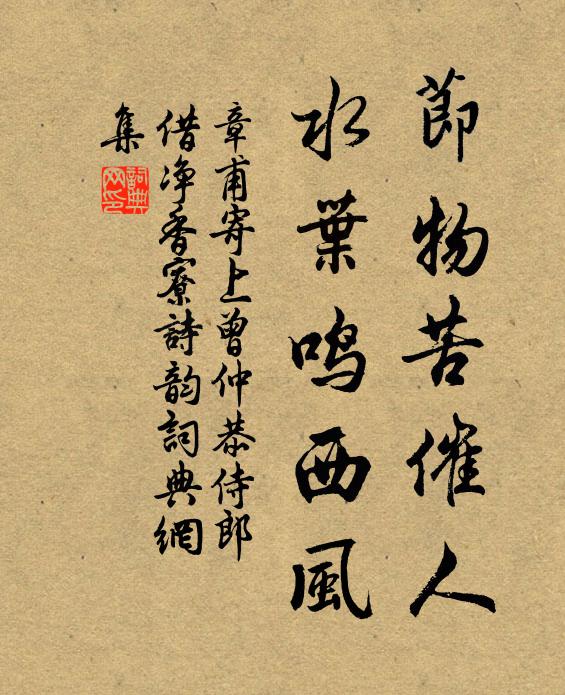 節物苦催人
水葉鳴西風
章甫寄上曾仲恭侍郎
借净香寮詩韵詞典網
集
詞典網印